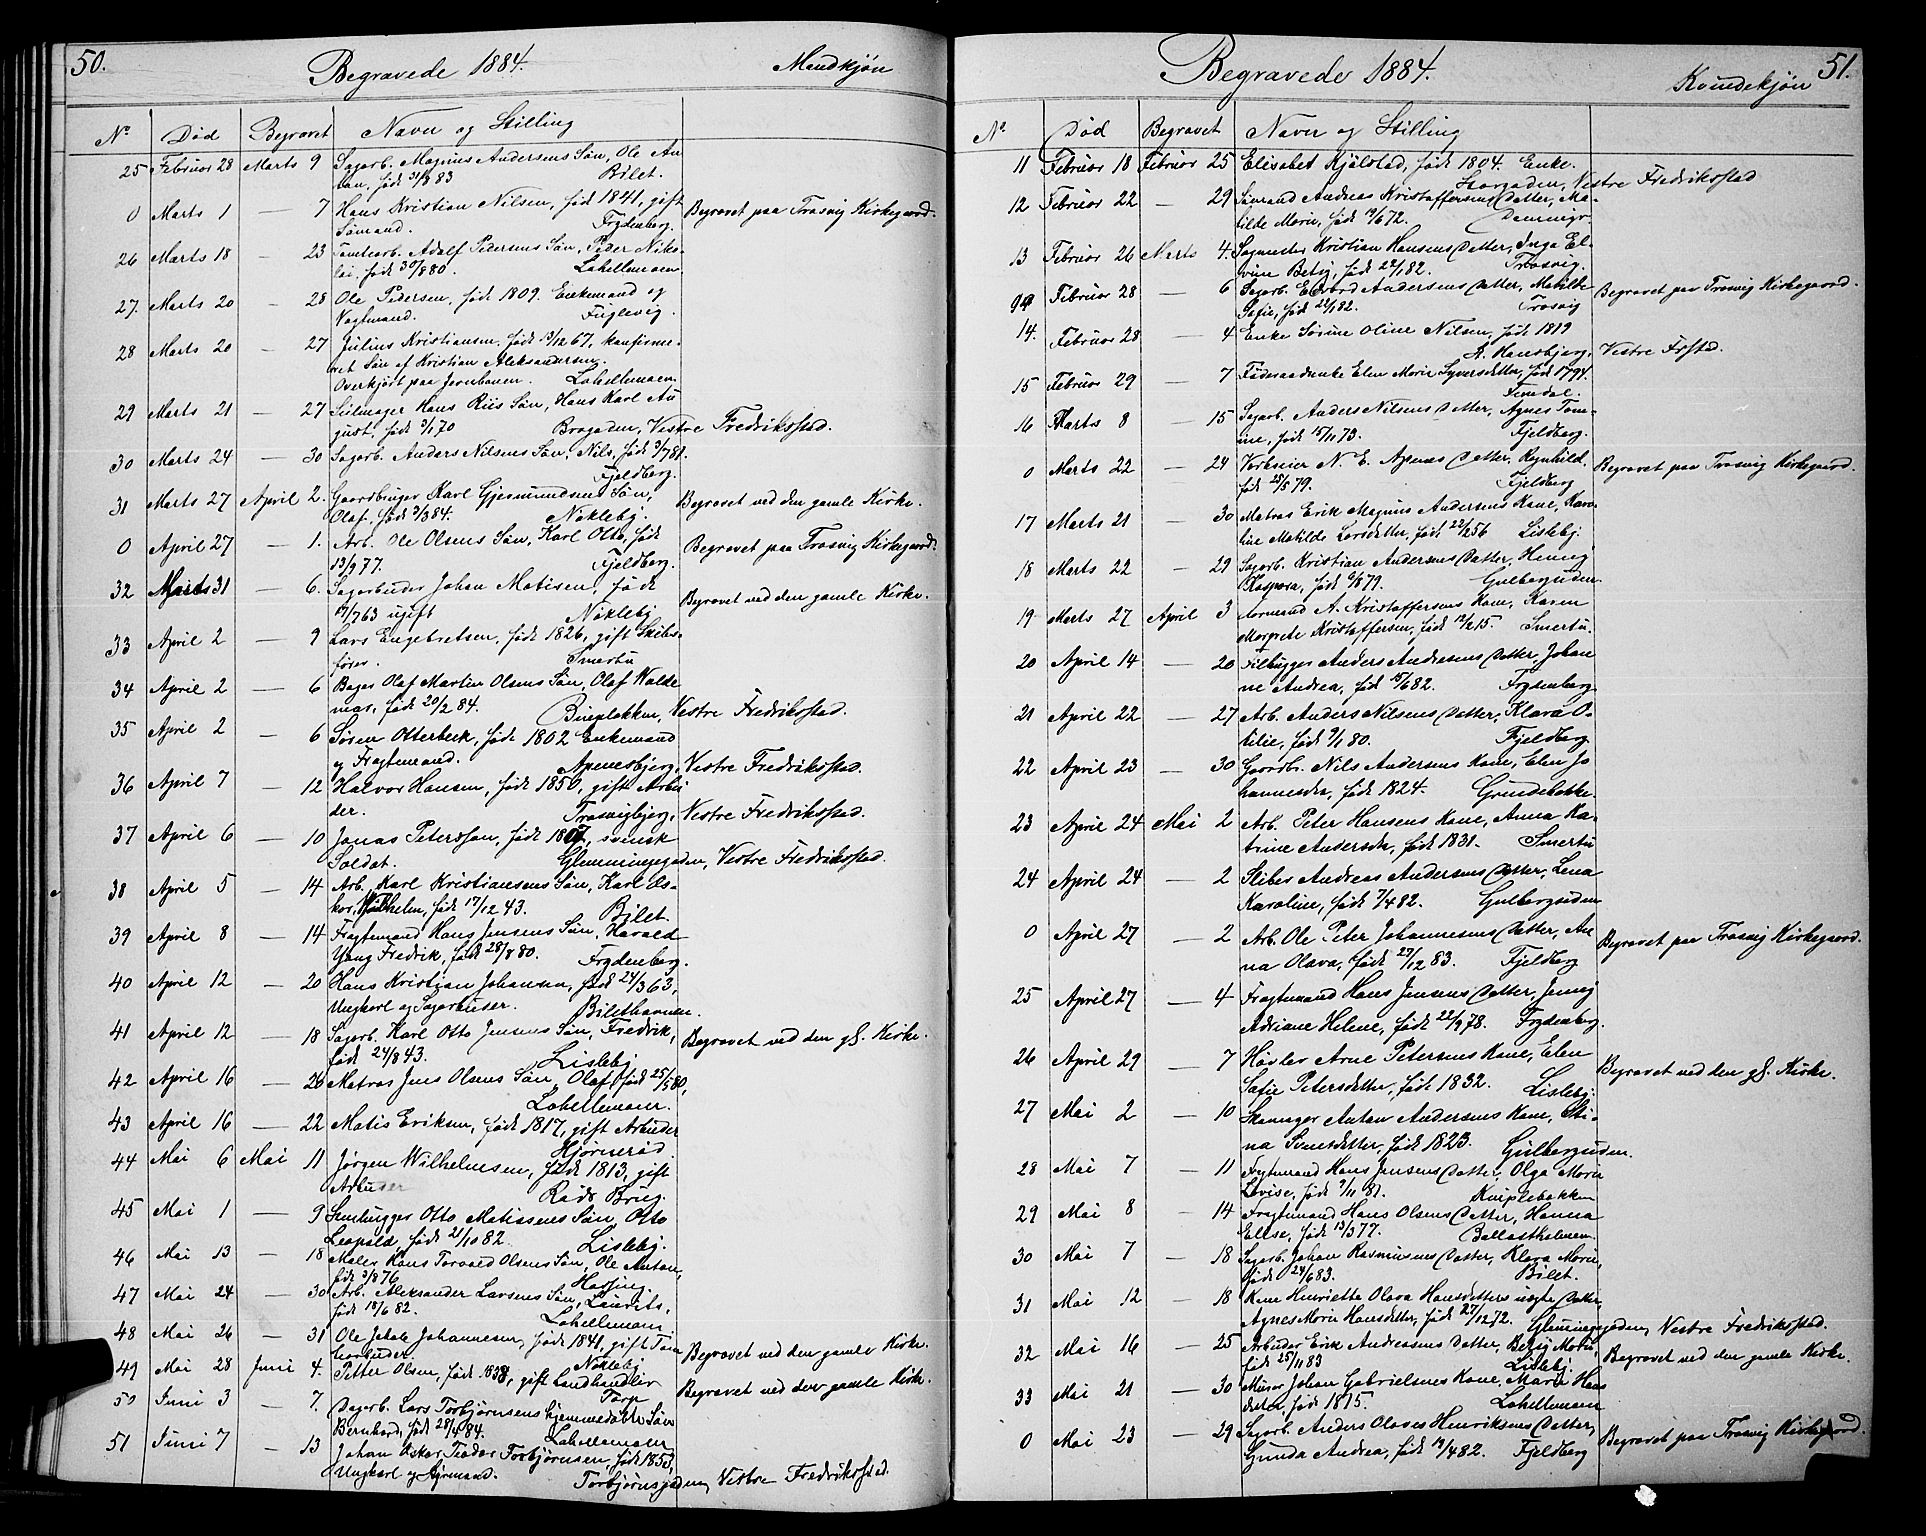 50.
Begravede 1884.
Mandkjøn
No Død Begravet Navn og Stilling
25 Februar 28 Marts 9 Sagarb. Magnus Andersens Søn, Ole An
ton, født 31/3 83 Bilet.
0 Marts 1 — 7 Hans Kristian Nilsen, født 1841, gift Begravet paa Trosvig Kirkegaard.
Sømand. Frydenberg.
26 Marts 18 23 Tomtearb. Adolf Pedersens Søn, Peder Niko-
lai, født 30/8 80. Lahellemoen
27. Marts 20 — 28 Ole Pedersen, født 1809. Enkemand og
Vagtmand. Fuglevig.
28 Marts 20 — 27 Julius Kristiansen, født 13/12 67, konfirme-
ret Søn af Kristian Aleksandersen.
Overkjørt paa Jernbanen. Lahellemoen
29 Marts 21 — 27 Seilmager Hans Riis Søn, Hans Karl Au
gust, født 3/1 70 Brogaden, Vestre Fredriksstad.
30 Marts 24 — 30 Sagarb. Anders Nilsens Søn, Nils, født 3/7 81.
Fjeldberg.
31 Marts 27 April 2. Gaardbruger Karl Gjesmundsens Søn, Begravet ved den gamle Kirke.
Olaf, født 3/3 84. Nøkleby.
0 April 27 — 1. Arb. Ole Olsens Søn, Karl Otto, født Begravet paa Trosvig Kirkegaard.
13/9 77. Fjeldberg.
32 Marts 31 — 6. Sagarbeider Johan Matisen, født Begravet ved den gamle Kirke.
17/7 63 ugift Nøkleby
33 April 2 — 9 Lars Engebretsen, født 1826, gift Skibs-
fører. Smertu
34 April 2 — 6 Bager Olaf Martin Olsens Søn, Olaf Walde
mar, født 20/2 84. Bineplokken, Vestre Fredriksstad.
35 April 2 6 Søren Otterbeck, født 1802 Enkemand
og Fragtemand. Apenesbjerg, Vestre Fredriksstad.
36 April 7 — 12 Halvor Hansen, født 1850, gift Arbei
der. Trosvigbjerg, Vestre Fredriksstad.
37 April 6 — 10 Jonas Petersson, født 1867, svensk
Soldat. Glemmingegaden, Vestre Fredriksstad.
38 April 5 — 14 Arb. Karl Kristiansens Søn, Karl Os-
kar, Wilhelm, født 17/12 43. Bilet.
39 April 8 — 14 Fragtemand Hans Jensens Søn, Harald
Yang Fredrik, født 28/8 80. Frydenberg.
40 April 12 — 20 Hans Kristian Johansen, født 24/3 63,
Ungkarl og Sagarbeider. Bilethavnen.
41 April 12 — 18 Sagarb. Karl Otto Jensens Søn, Fredrik, Begravet ved den gl. Kirke.
født 24/8 43. Lisleby
42 April 16 — 26 Matros Jens Olsens Søn, Olaf, født 25/5 80,
Lahellemoen.
43 April 16 — 22 Matis Eriksen, født 1817, gift Arbeider
Hjørnerød
44 Mai 6 Mai 11 Jørgen Wilhelmsen, født 1813, gift
Arbeider Røds Brug.
45 Mai 1 — 9 Stenhugger Otto Matissens Søn, Otto
Leopold, født 21/10 82. Lisleby.
46 Mai 13 — 18 Maler Hans Torvald Olsens Søn, Ole Anton,
født 3/8 76 Hassing
47 Mai 24 — 30 Arb. Aleksander Larsens Søn, Laurits,
født 18/6 82. Lahellemoen
48 Mai 26 — 31 Ole Jakob Johannesen, født 1841, gift Tøm Begravet ved den gamle Kirke.
Nøkleby
49 Mai 28 Juni 4. Petter Olsen, født 1838, gift Landhandler Begravet ved den gamle Kirke.
Torp
50 Juni 3 — 7. Dagarb. Lars Torbjørnsens hjemmedøbte Søn
Bernhard, født 28/4 84. Lahellemoen
51 Juni 7 — 13 Johan Oskar Teodor Torbjørnsen, født 1853,
Ungkarl og Sjømand. Torbjørnsgaden, Vestre Fredriksstad.
Begravede 1884.
51.
Kvindekjøn
No. Død Begravet Navn og Stilling
11 Februar 18 Februar 25 Elisabet Kjølstad, født 1804. Enke.
Storgaden, Vestre Fredriksstad
12 Februar 22 — 29 Sømand Andreas Kristoffersens Datter, Ma-
tilde Marie, født 19/6 72.
13 Februar 26 Marts 4. Sagmester Kristian Hansens Datter, Inga El-
vine Betsy, født 22/1 82. Trosvig.
99 Februar 28 — 6 Sagarb. Edvard Andersens Datter, Matilde Begravet paa Trosvig Kirkegaard.
Sofie, født 21/1 82. Trosvig
14. Februar 28 — 4 Enke Sørine Oline Nilsen, født 1819
R. Hansbjerg, Vestre Frstad.
15 Februar 29 — 7 Føderaadsenke Elen Marie Syversdatter, født 1794.
Femdal.
16 Marts 8 — 15 Sagarb. Anders Nilsens Datter, Agnes Tom-
ine, født 15/11 73. Fjeldberg.
0 Marts 22 — 24 Verkseier N. E. Apenæs Datter, Ragnhild, Begravet paa Trosvig Kirkegaard.
født 28/5 79. Fjeldberg
17 Marts 21 — 30 Matros Erik Magnus Andersens Kone, Karo-
line Matilde Larsdatter, født 22/2 56 Lisleby.
18 Marts 22 — 29 Sagarb. Kristian Andersens Datter, Henny
Kaspara, født 6/8 79. Gulbergsiden
19 Marts 27 April 3 A. Kristoffersens Kone, Karen
Margrete Kristoffersen, født 12/2 15. Smertu.
20 April 14 — 20 Filhugger Anders Andreasens Datter, Johan
ne Andrea, født 15/6 82. Frydenberg
21 April 22 — 27 Arb. Anders Nilsens Datter, Klara O-
tilie, født 9/1 80. Fjeldberg
22 April 23 — 30 Gaardbr. Nils Andersens Kone, Elen Jo
hannesdtr, født 1824. Grundebakke.
23 April 24 Mai 2 Arb. Peter Hansens Kone, Anna Ka-
trine Andersdtr, født 1831. Smertu
24 April 24 — 2 Stiber Andreas Andersens Datter, Lena
Karoline, født 7/4 82. Gulbergsiden
0 April 27 — 2 Arb. Ole Peter Johannesens Datter, An Begravet paa Trosvig Kirkegaard.
na Olava, født 27/12 83. Fjeldberg
25 April 27 — 4 Fragtemand Hans Jensens Datter, Jenny
Adriane Helene, født 22/9 78. Frydenberg.
26 April 29 — 7 Høvler Arne Petersens Kone, Elen Begravet ved den gl. Kirke.
Sofie Petersdatter, født 1832. Lisleby.
27 Mai 2 — 10 Skomager Anton Andersens Kone, Sti-
na Svensdatter, født 1823. Gulbergsiden.
28 Mai 7 — 11 Fragtemand Hans Jensens Datter, Olga Marie
Lovise, født 9/11 81. Kniplebakken
29 Mai 8 — 14 Fragtemand Hans Olsens Datter, Hanna
Elise, født 13/3 77. Ballastholmen.
30 Mai 7 — 18 Sagarb. Johan Rasmusens Datter, Klara Marie,
født 24/6 83. Bilet.
31 Mai 12 — 18 Kone Henriette Olava Hansdatters uægte Datter,
Agnes Marie Hansdatter, født 27/12 72. Glemmingegaden, Vestre Fredriksstad.
32 Mai 16 — 25 Arbeider Erik Andreasens Datter, Betsy Marie, Begravet ved den gamle Kirke.
født 25/11 83 Lisleby.
33 Mai 21 — 30 Murer Johan Gabrielsens Kone, Maria Hans
datter, født 1815. Lahellemoen
0 Mai 23 — 29 Sagarb. Anders Olaves Henriksens Datter, Begravet paa Trosvig Kirkegaard.
Gunda Andrea, født 19/4 82. Fjeldberg